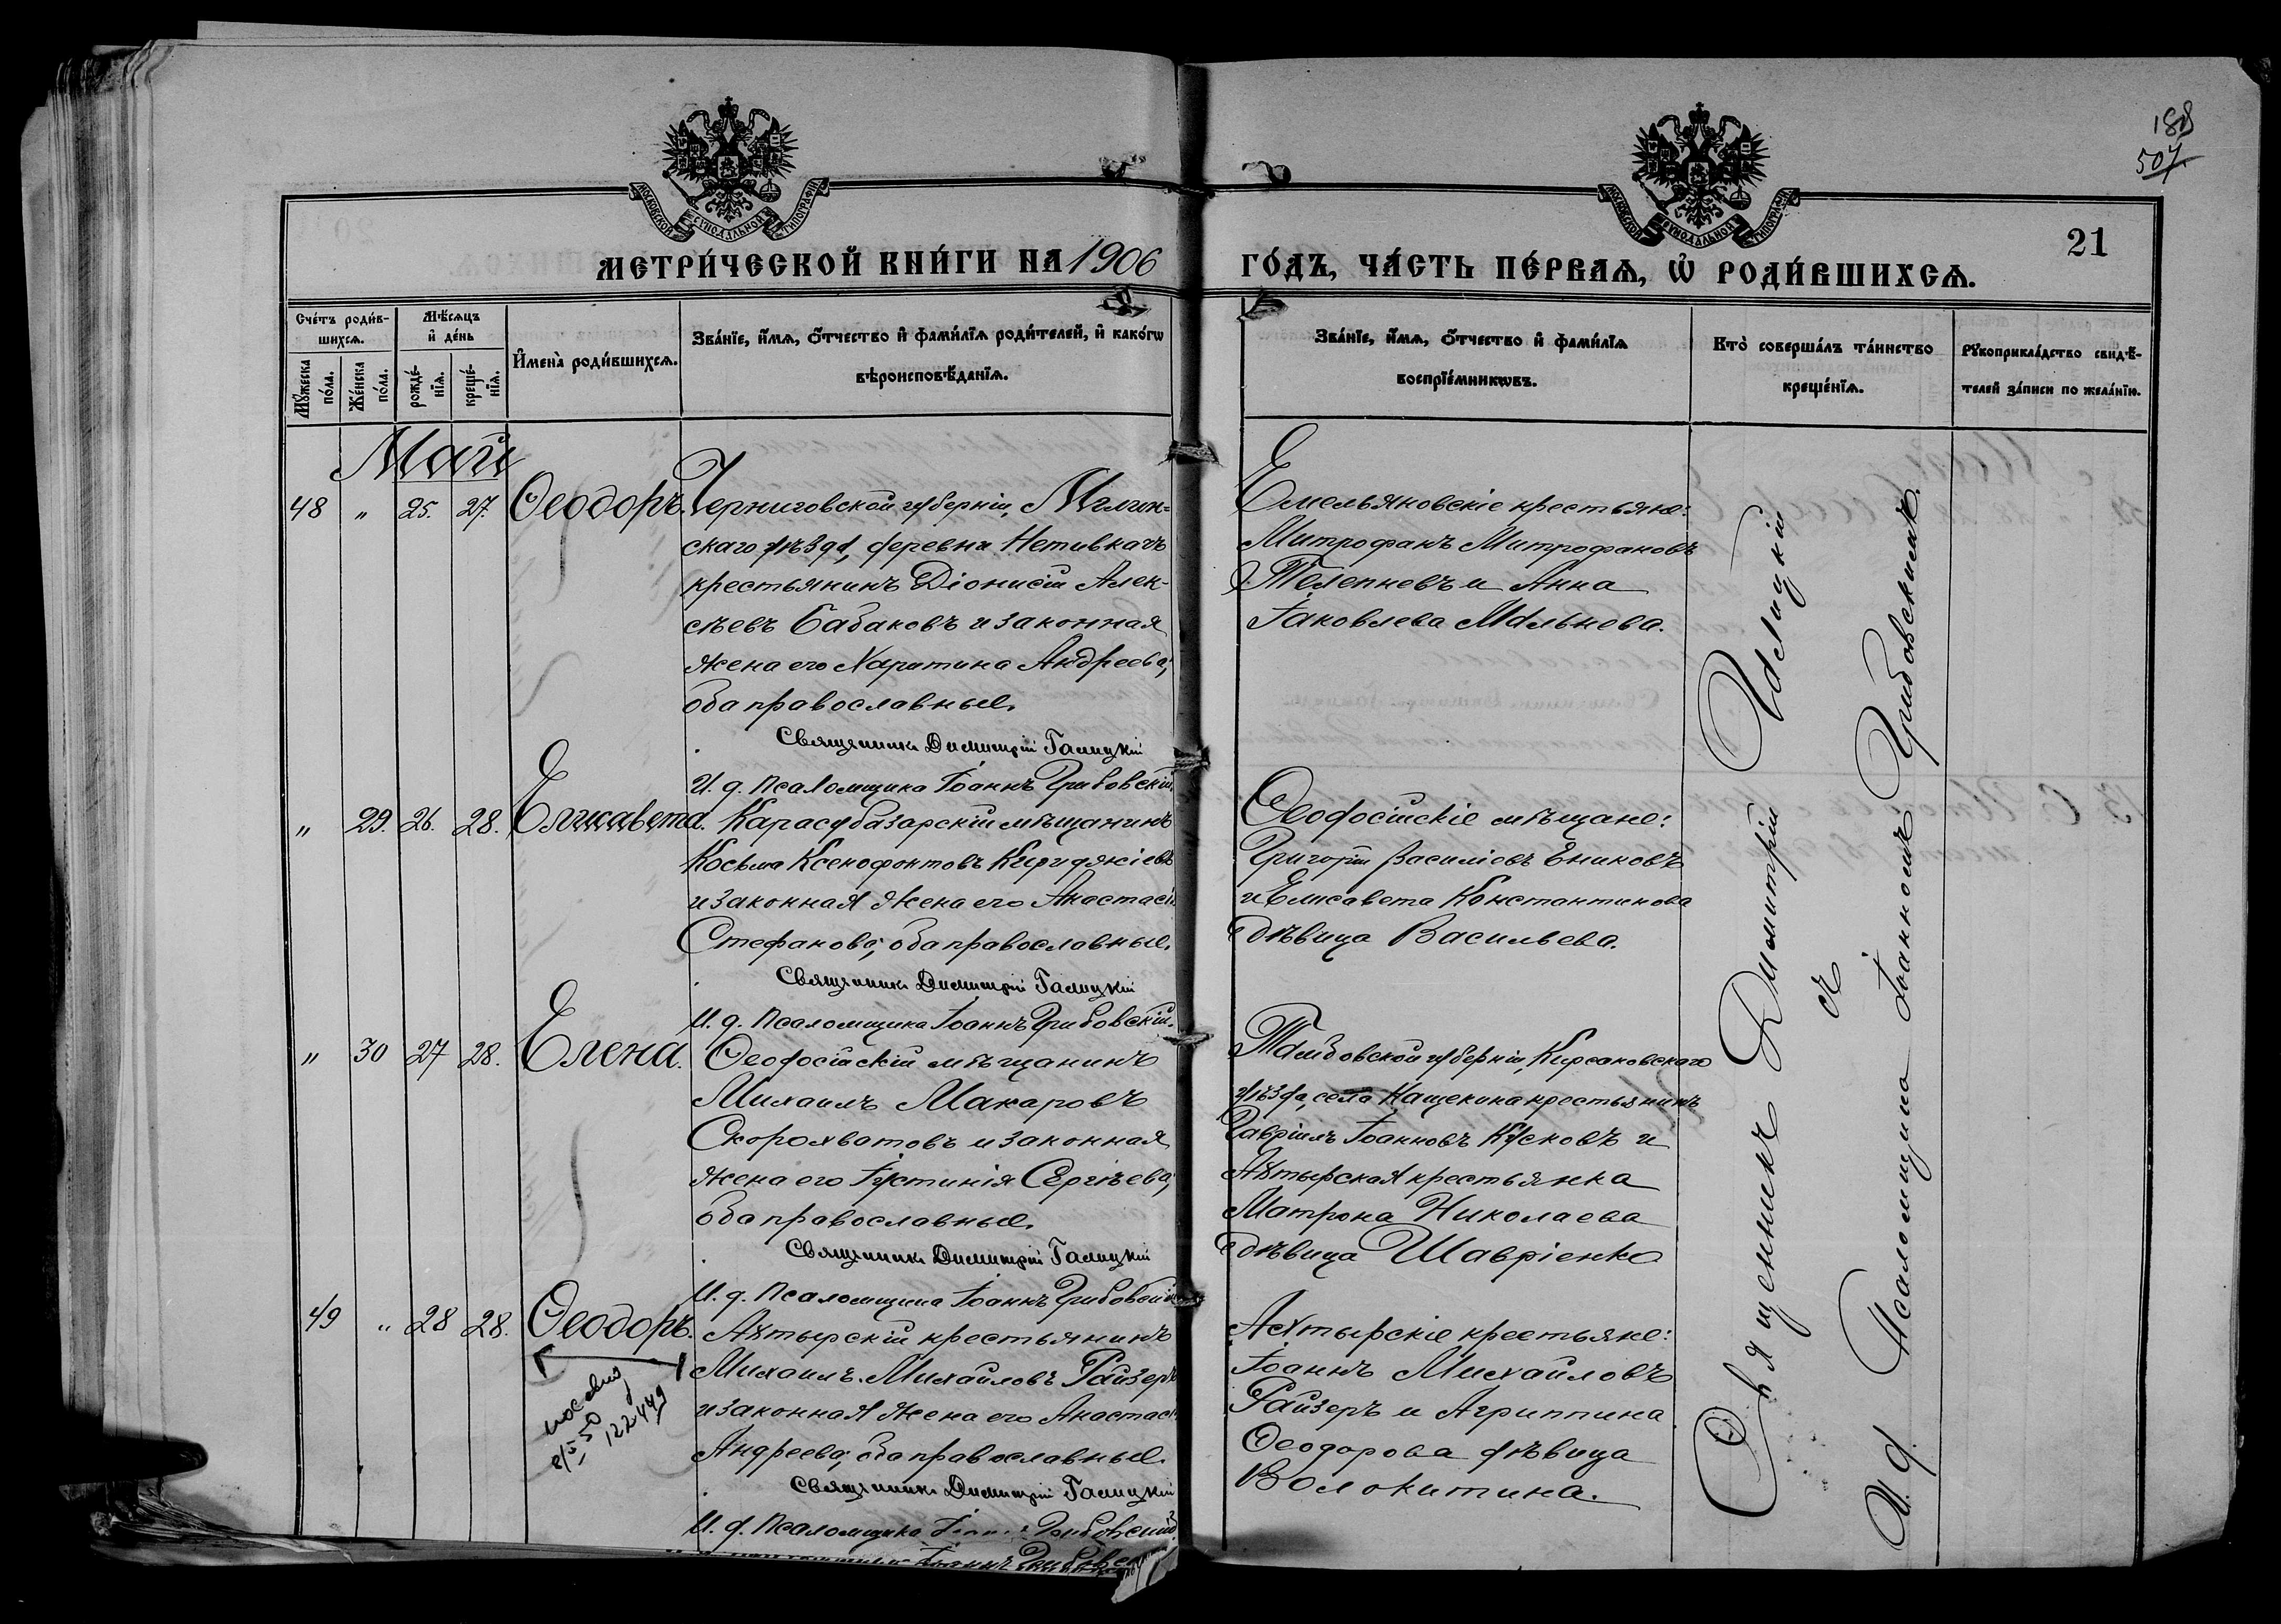 188
507
МОСКОВСКОЙ СѴНОДАЛЬНОЙ ТИПОГРАФІИ
МОСКОВСКОЙ СѴНОДАЛЬНОЙ ТИПОГРАФІИ
21
МЕТРИ́ЧЕСКОЙ КНИ́ГИ НА 1906
ГО́ДЪ, ЧА́СТЬ ПЕ́РВАѦ, Ѡ҆ РОДИ́ВШИХСѦ.
Сче́тъ роди́в-
шихсѧ.
Мꙋ́жеска по́ла.
Же́нска по́ла.
Мѣ́сѧцъ
и҆ де́нь
рожде́-
нїѧ.
креще́-
нїѧ.
И҆мена̀ роди́вшихсѧ.
Зва́нїе, и҆́мѧ, ѻ҆́тчество и҆ фами́лїѧ роди́телей, и҆ како́гѡ
вѣроисповѣ́данїѧ.
Зва́нїе, и҆́мѧ, ѻ҆́тчество и҆ фами́лїѧ
воспрїе́мникѡвъ.
Кто̀ соверша́лъ та́инство
креще́нїѧ.
Рꙋкоприкла́дство свидѣ́-
телей за́писи по жела́нїю.
Май
48 " 25. 27. Ѳеодоръ. Черниговской губерніи, Мглин-
скаго уѣзда, деревни
крестьянинъ Діонисій Алек-
сѣевъ Бабаковъ и законная
жена его Харитина Андреева,
оба православные.
Священникъ Димитрій Галицкій
И. д. Псаломщика Іоаннъ Грибовскій.
Емельяновскіе крестьяне:
Митрофанъ Митрофановъ
Телепневъ и Анна
Іаковлева Мальнева.
" 29. 26. 28. Елисавета. Карасубазарскій мѣщанинъ
Косьма Ксенофонтовъ
и законная жена его Анастасія
Стефанова, оба православные.
Священникъ Димитрій Галицкій
И. д. Псаломщика Іоаннъ Грибовскій.
Ѳеодосійскіе мѣщане:
Григорій Василіевъ Ениковъ
и Елисавета Константинова
дѣвица Васильева.
" 30 27 28. Елена. Ѳеодосійскій мѣщанинъ
Михаилъ Макаровъ
Скорохватовъ и законная
жена его Іустинія Сергіева,
оба православные.
Священникъ Димитрій Галицкій
И. д. Псаломщика Іоаннъ Грибовскій
Тамбовской губерніи, Кирсановскаго
уѣзда, села Кащекина крестьянинъ
Гавріилъ Іоанновъ Кусковъ и
Ахтырская крестьянка
Матрона Николаева
дѣвица Шавріенко
49 " 28 28. Ѳеодоръ. Ахтырскій крестьянинъ
Михаилъ Михайловъ Райзеръ
и законная жена его Анастасія
Андреева, оба православные.
Священникъ Димитрій Галицкій
И. д. Псаломщика Іоаннъ Грибовскій
Ахтырскіе крестьяне:
Іоаннъ Михайловъ
Райзеръ и Агриппина
Ѳеодорова дѣвица
Волокитина.
122449
Священникъ Димитрій Галицкій
съ
И. д. Псаломщика Іоанномъ Грибовскимъ.